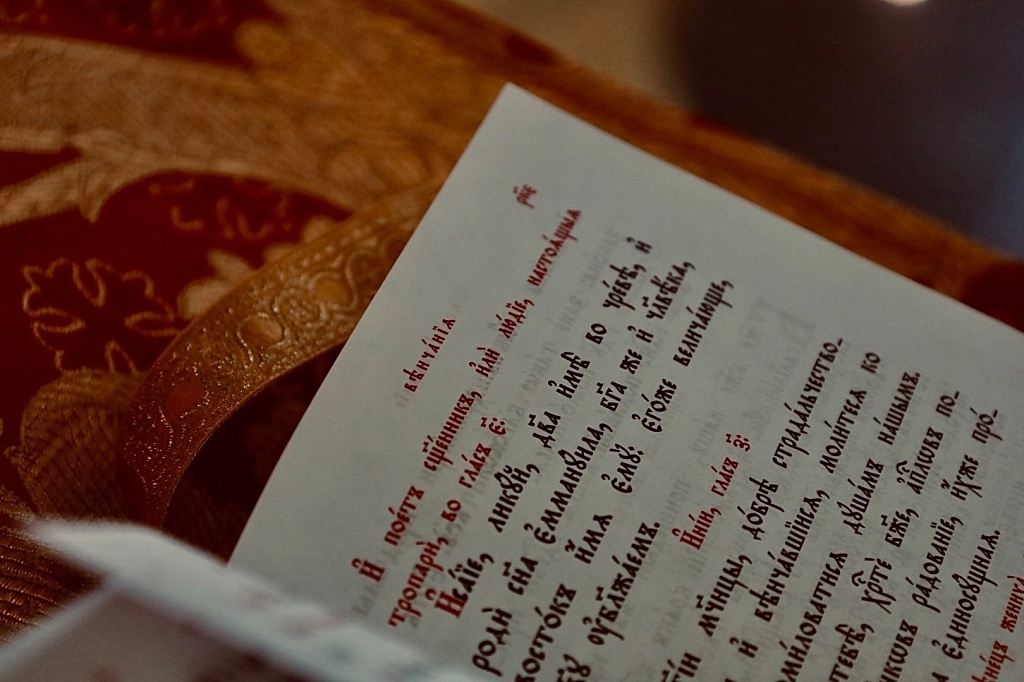 вѣнча́нїѧ рк҃е
И҆ пое́тъ сщ҃е́нникъ, и҆лѝ лю́дїе, настоѧ́щыѧ
тропарѝ, во гла́съ є҃:
И҆са́їе, лику́й, дв҃а и҆мѣ̀ во чре́вѣ, и҆
родѝ сн҃а є҆мману́ила, бг҃а же и҆ чл҃вѣ́ка,
восто́къ и҆́мѧ є҆мꙋ̀: є҆го́же велича́юще,
оу҆блажа́емъ.
И҆ні́и, гла́съ з҃:
мч҃нцы, до́брѣ страда́льчество-
и҆ вѣнча́вшїисѧ, моли́тесѧ ко
поми́ловатисѧ дꙋша́мъ на́шымъ.
тебѣ̀, хрⷭ҇тѐ бж҃е, а҆пⷭ҇лѡвъ по-
ра́дованїе, и҆́хже про́-
є҆диносꙋ́щнаѧ.